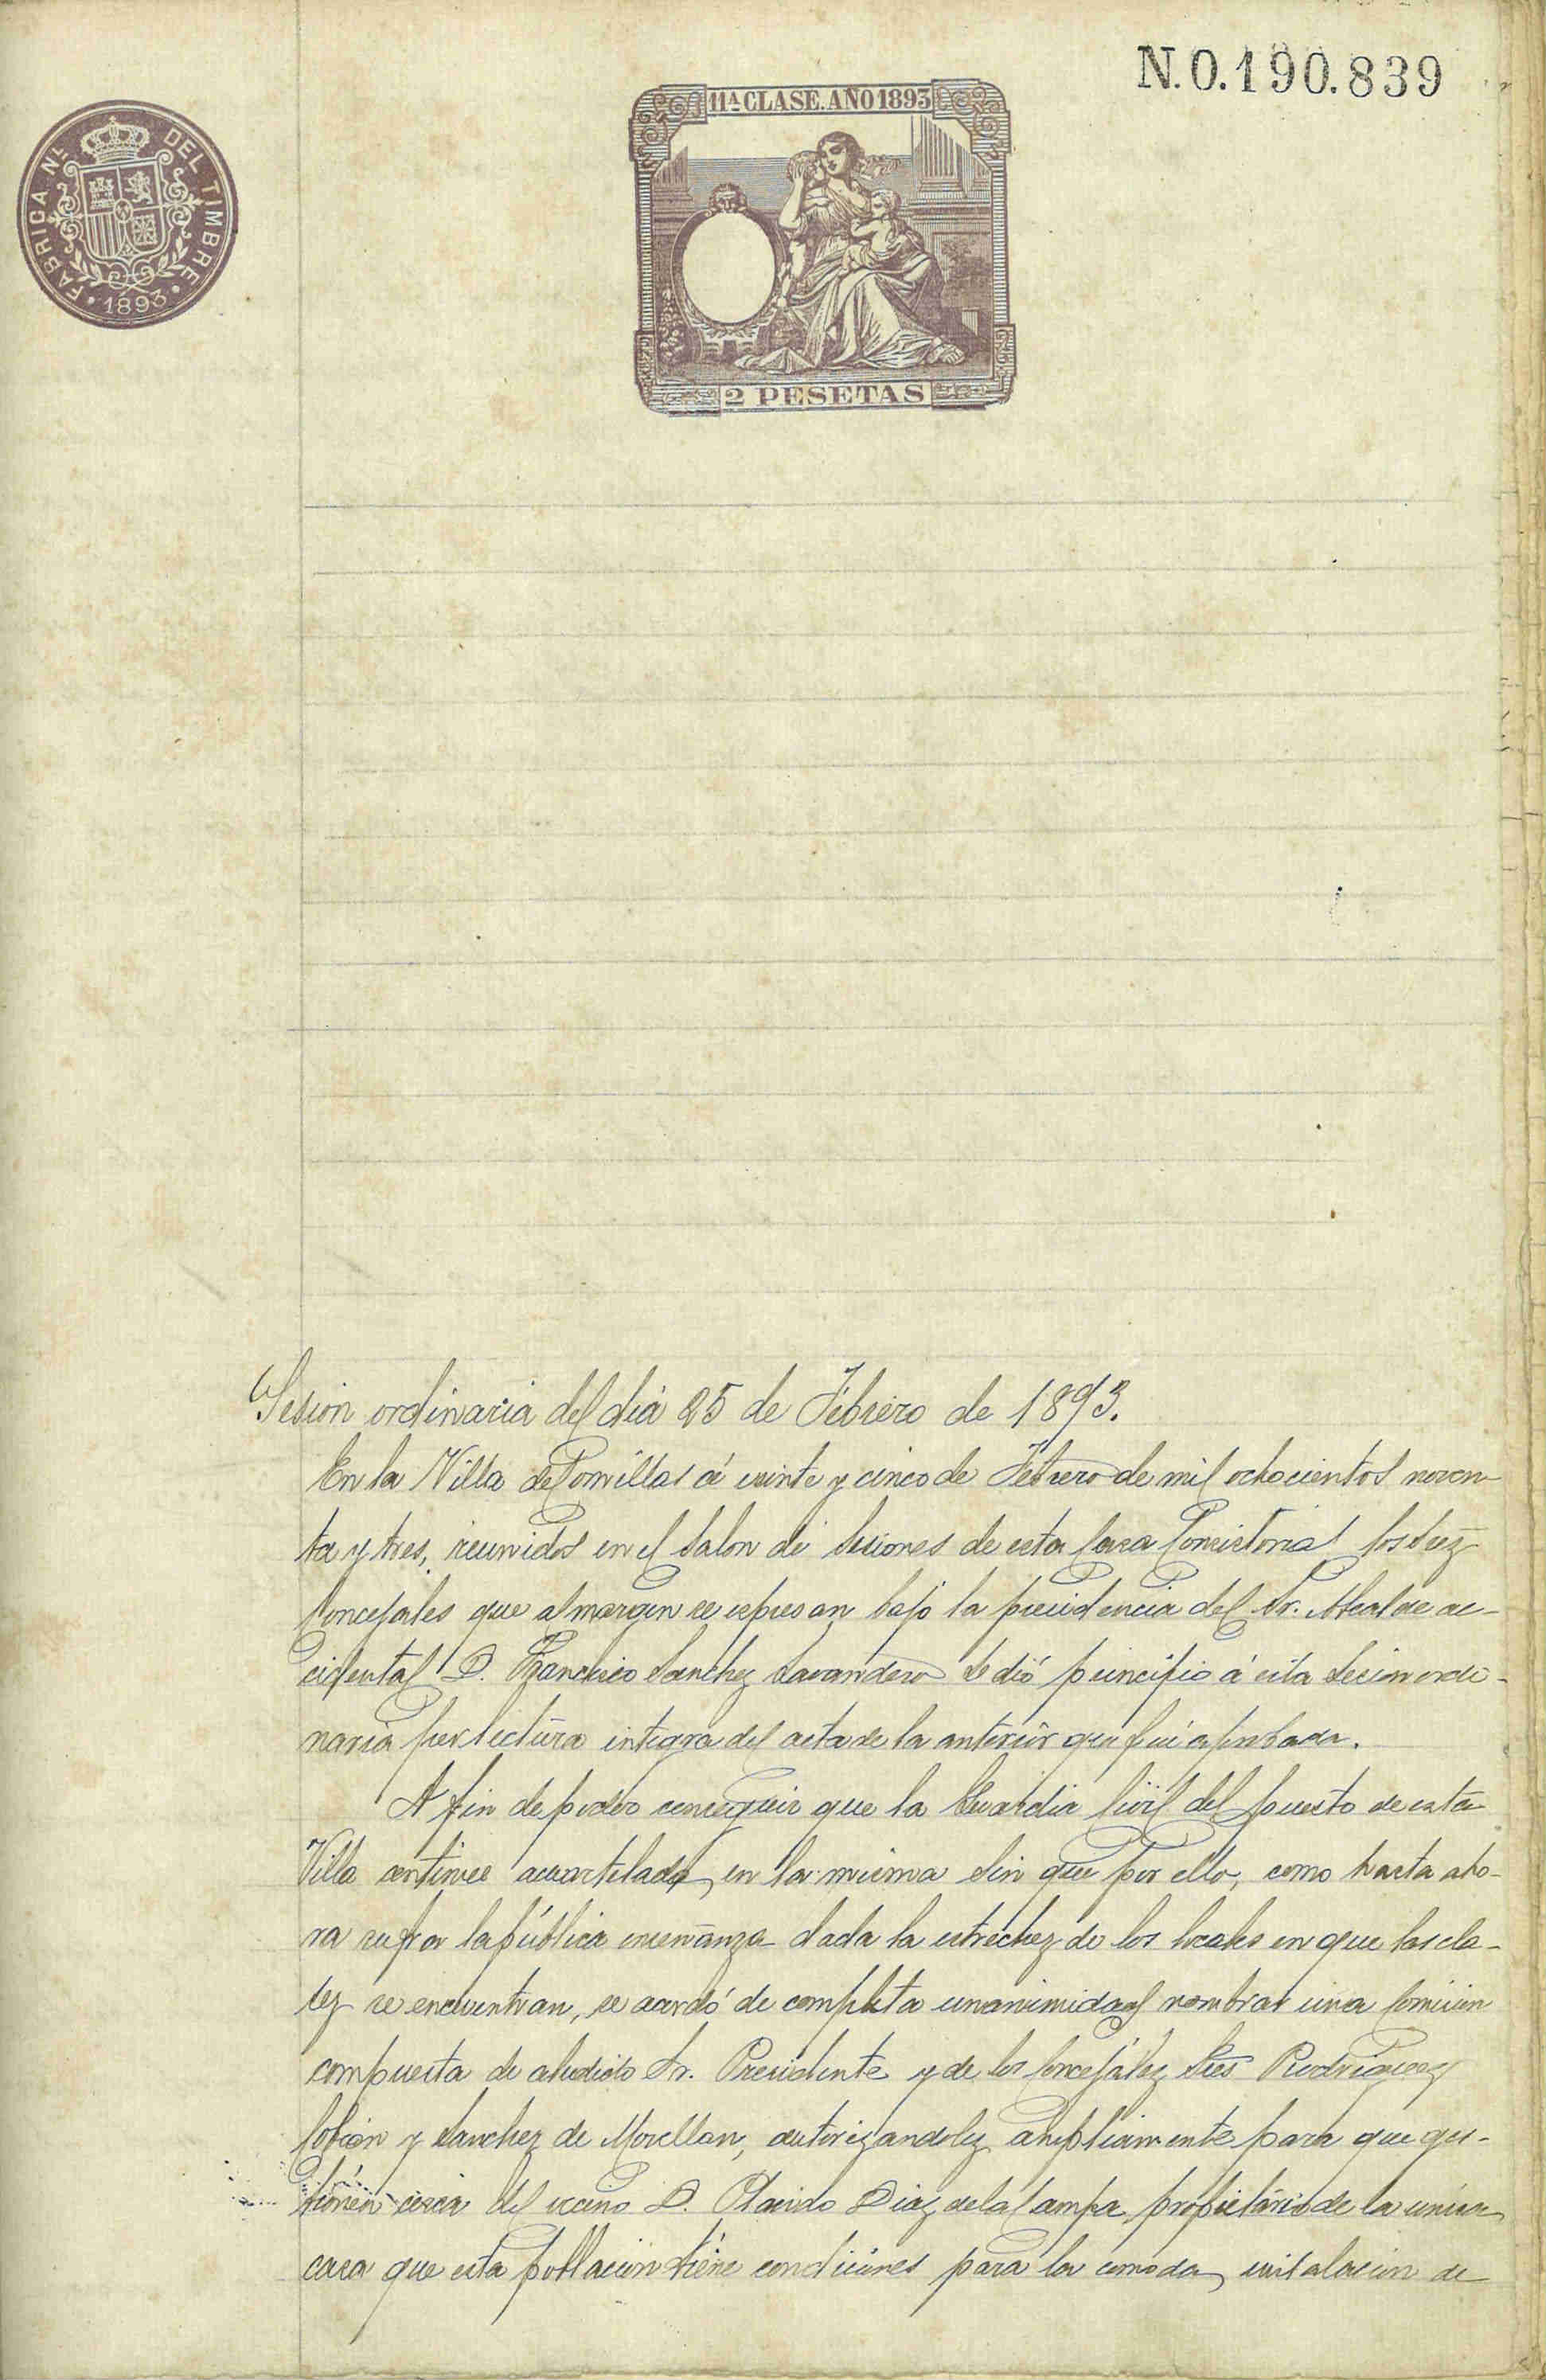 N.0.190.839
11ª CLASE. AÑO 1893
FABRICA Nˡ DEL TIMBRE
1893
2 PESETAS
Sesion ordinaria del dia 25 de Febrero de 1893.
En la Villa de Comillas á veinte y cinco de Febrero de mil ochocientos noven-
ta y tres, reunidos en el Salon de Sesiones de esta Casa Consistorial los Srs
Concejales que al margen se espresan bajo la presidencia del Sr. Alcalde ac-
cidental D. Francisco Sanchez Lavandero se dió principio á esta Sesion ordi-
naria por lectura integra del acta de la anterior que fué aprobada.
A fin de poder conseguir que la Guardia Civil del puesto de esta
Villa continue acuartelada en la misma sin que por ello, como hasta aho-
ra sufra la pública enseñanza dada la estrechez de los locales en que las cla-
ses se encuentran, se acordó de completa unanimidad nombrar una Comision
compuesta de aludido Sr. Presidente y de los Concejales Sres Rodriguez
Cobian y Sanchez de Movellan, autorizandoles ampliamente para que ges-
tionen cerca del vecino D. Placido Diaz de la Campa propietario de la unica
casa que esta poblacion tiene condiciones para la comoda instalacion de